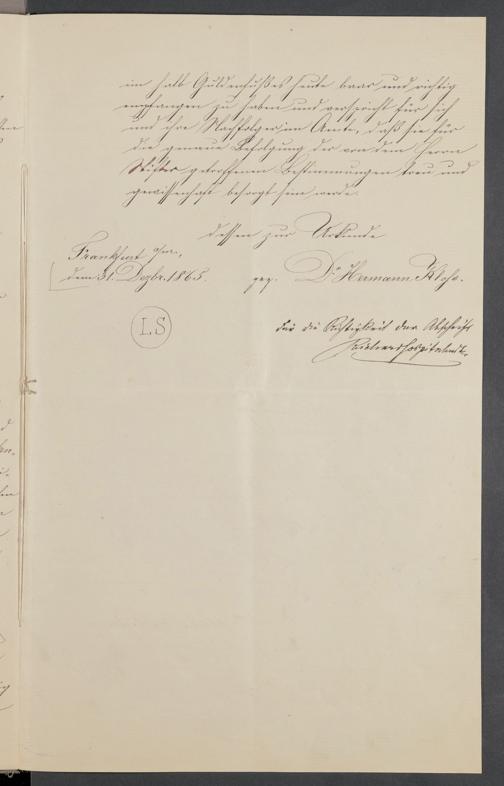 im halb Guldenfußes heute baar und richtig
empfangen zu haben und verspricht für sich
und ihre Nachfolger im Amte, daß sie für
die genaue Befolgung der von dem Herrn
Stifter getroffenen Bestimmungen treu und
gewissenhaft besorgt sein werde.
dessen zur Urkunde
Frankfurt a/m,
dem 31. Dezbr. 1865.
gez. Dr Hermann
LS
Für die Richtigkeit der Abschrift